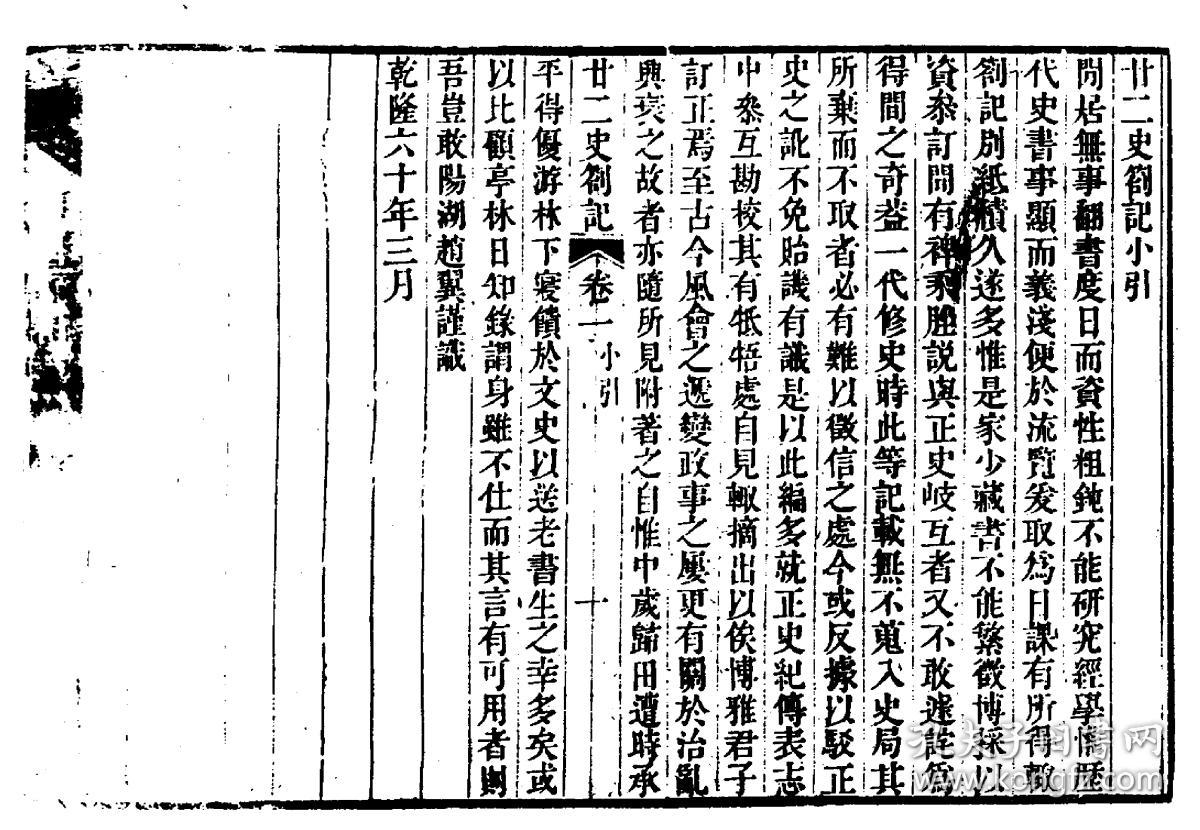 廿二史劄記小引
閒居無事翻書度日而資性粗鈍不能研究經學惟歷
代史書事顯而義淺便於流覽爰取爲日課有所得輙
劄記別紙積久遂多惟是家少藏書不能繁徵博採以
資叅訂閒有稗乘脞說與正史岐互者又不敢遽詫爲
得間之奇葢一代修史時此等記載無不蒐入史局其
所棄而不取者必有難以徵信之處今或反據以駁正
史之訛不免貽譏有識是以此編多就正史紀傳表志
中叅互勘校其有牴牾處自見輙摘出以俟博雅君子
訂正焉至古今風會之遞變政事之屢更有關於治亂
興衰之故者亦隨所見附著之自惟中歲歸田遭時承
廿二史劄記 卷一 小引 十
平得優游林下寢饋於文史以送老書生之幸多矣或
以比顧亭林日知錄謂身雖不仕而其言有可用者則
吾豈敢陽湖趙翼謹識
乾隆六十年三月
孔夫子旧书网
www.kongfz.com